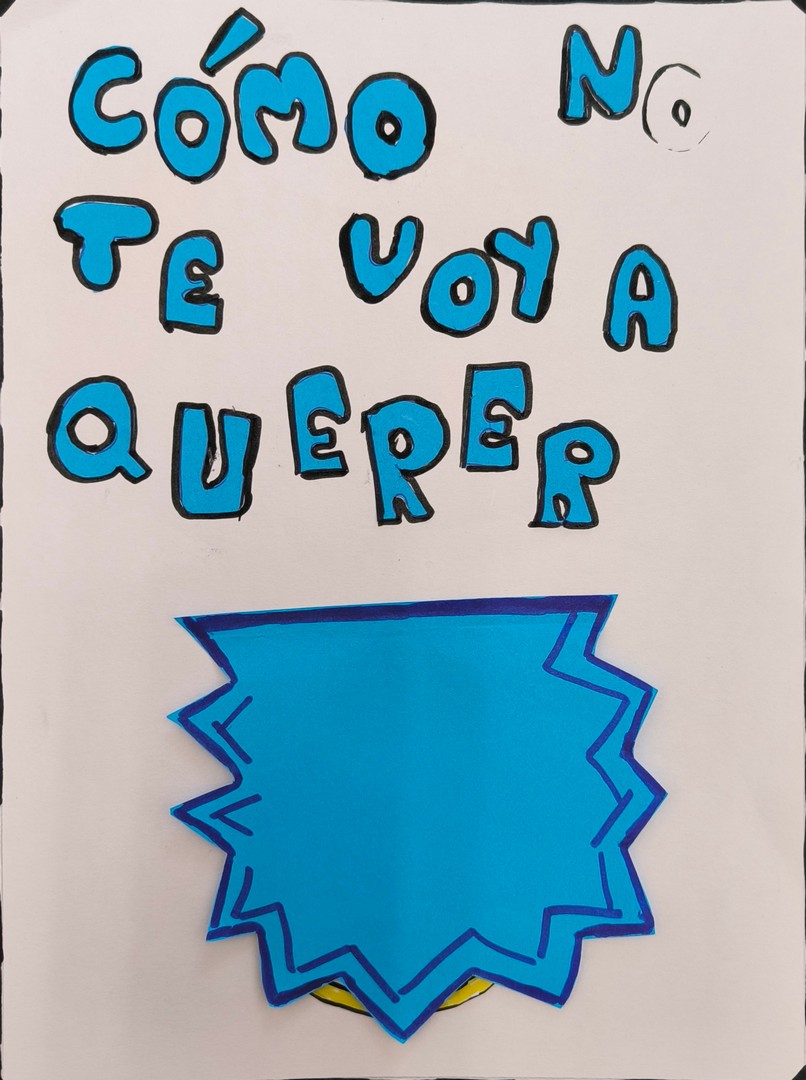 CÓMO NO
TE VOY A
QUERER